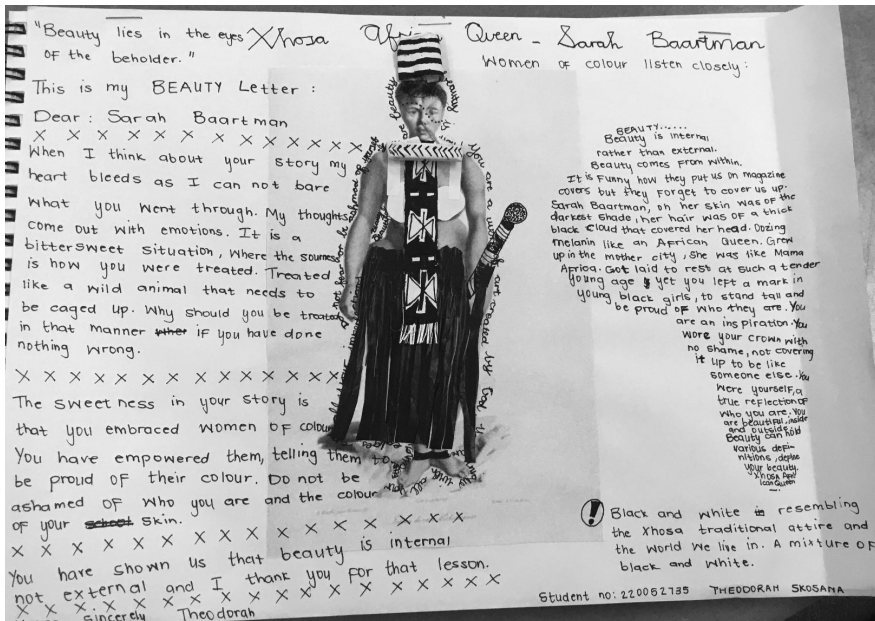 "Beauty lies in the eyes
of the beholder."
Xhosa African Queen - Sarah Baartman
Women of colour listen closely:
This is my BEAUTY Letter:
Dear: Sarah Baartman
X X X X X X X X X X X X X
When I think about your story my
heart bleeds as I can not bare
what you went through. My thoughts
come out with emotions. It is a
bittersweet situation, where the sourness
is how you were treated. Treated
like a wild animal that needs to
be caged up. Why should you be treated
in that manner if you have done
nothing wrong.
X X X X X X X X X X X X X X X
The sweetness in your story is
that you embraced women of colour
You have empowered them, telling them to
be proud of their colour. Do not be
ashamed of who you are and the colour
of your school skin.
X X X X X X X X X X X X X X
You have shown us that beauty is internal
not external and I thank you for that lesson.
X X X X X X X X X X X X X X X X X
sincerely Theodorah
are beauty
You are a
art created by God
BEAUTY......
Beauty is internal
rather than external.
Beauty comes from within.
It is Funny how they put us on magazine
covers but they forget to cover us up.
Sarah Baartman, oh her skin was of the
darkest shade, her hair was of a thick
black cloud that covered her head. Oozing
melanin like an African Queen. Grew
up in the mother city, she was like Mama
Africa. Got laid to rest at such a tender
young age, yet you left a mark in
young black girls, to stand tall and
be proud of who they are. You
are an inspiration. You
wore your crown with
no shame, not covering
it up to be like
someone else. You
were yourself, a
true reflection of
who you are. You
are beautiful, inside
and outside.
Beauty can hold
various defi-
nitions, define
your beauty.
Xhosa Afr
ican Queen
! Black and white is resembling
the Xhosa traditional attire and
the world we live in. A mixture of
black and white.
Student no: 220052735 THEODORAH SKOSANA